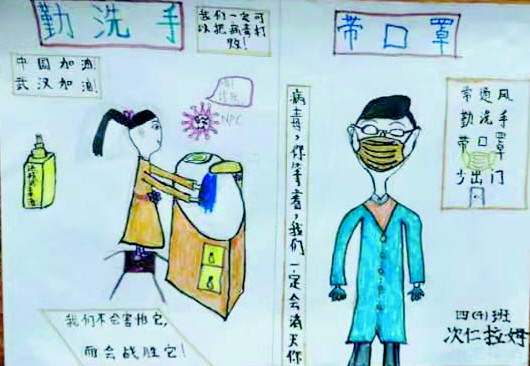 勤洗手
我们一定可
以把病毒打
败!
中国加油!
武汉加油!
NPC
我们不会害怕它,
而会战胜它!
病毒,你等着,我们一定会消灭你
带口罩
常通风
勤洗手
带口罩
少出门
四(4)班
次仁拉姆